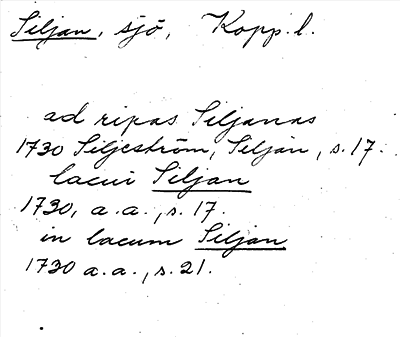 Siljan, sjö, Kopp. l.
ad ripas Siljanas
1730 Siljeström, Siljan, s. 17.
lacui Siljan
1730, a. a., s. 17.
in lacum Siljan
1730 a. a., s. 21.